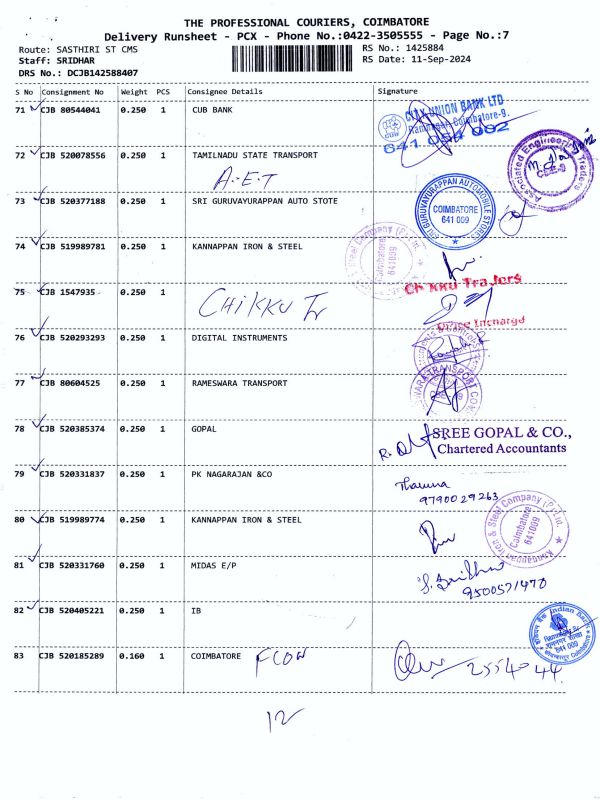 THE PROFESSIONAL COURIERS, COIMBATORE
Delivery Runsheet - PCX - Phone No.:0422-3505555 - Page No.:7
Route: SASTHIRI ST CMS
RS No.: 1425884
Staff: SRIDHAR
RS Date: 11-Sep-2024
DRS No.: DCJB142588407
S No Consignment No Weight PCS Consignee Details Signature
71 CJB 80544041 0.250 1 CUB BANK
CITY UNION BANK LTD
Ramnagar, Coimbatore-9.
641 054 002
72 CJB 520078556 0.250 1 TAMILNADU STATE TRANSPORT
A.E.T
Associated Engineering Traders
73 CJB 520377188 0.250 1 SRI GURUVAYURAPPAN AUTO STOTE
SRI GURUVAYURAPPAN AUTOMOBILE STORES
COIMBATORE
641 009
74 CJB 519989781 0.250 1 KANNAPPAN IRON & STEEL
Steel Company (P) Ltd
Coimbatore
641009
75 CJB 1547935 0.250 1
CHIKKU Tr
Chikku Traders
Office Incharge
76 CJB 520293293 0.250 1 DIGITAL INSTRUMENTS
77 CJB 80604525 0.250 1 RAMESWARA TRANSPORT
78 CJB 520385374 0.250 1 GOPAL
SREE GOPAL & CO.,
Chartered Accountants
79 CJB 520331837 0.250 1 PK NAGARAJAN &CO
9790029263
80 CJB 519989774 0.250 1 KANNAPPAN IRON & STEEL
Kannappan Iron & Steel Company (P) Ltd
Coimbatore
641009
81 CJB 520331760 0.250 1 MIDAS E/P
9500571470
82 CJB 520405221 0.250 1 IB
Indian Bank
641 009
83 CJB 520185289 0.160 1 COIMBATORE FLOW
2554044
12